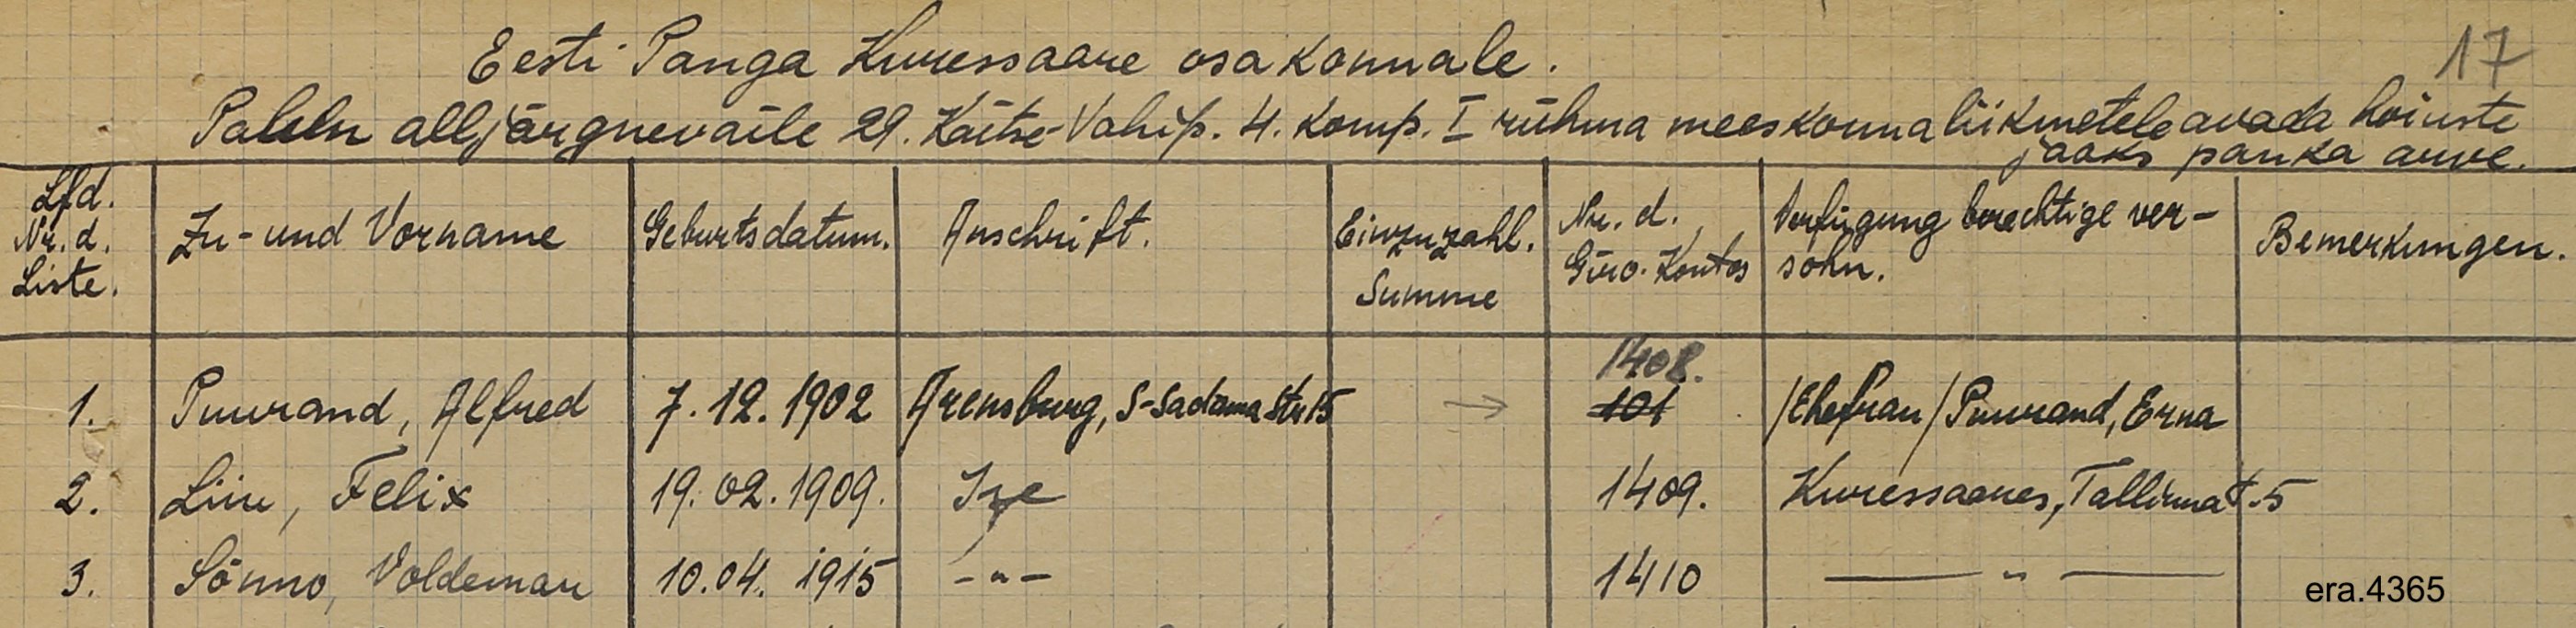 17
Eesti Panga Kuressaare osakonnale.
Palun alljärgnevaile 29. Kaitse-Vahip. 4. komp. I rühma meeskonnaliikmetele avada hoiuste
jaoks panka arve.
Lfd. Nr. d. Liste. Zu- und Vorname Geburtsdatum. Anschrift. Einzuzahl. Summe Nr. d. Giro-Kontos Verfügung berechtige ver-sohn. Bemerkungen.
1. Puurand, Alfred 7.12.1902 Arensburg, S-Sadama Str 15 → 1408. 101 /Ehefrau/ Puurand, Erna
2. Liiv, Felix 19.02.1909. 1409. Kuressaares, Tallinna t. 5
3. Sõnno, Voldemar 10.04.1915 -"- 1410 —"—
era.4365